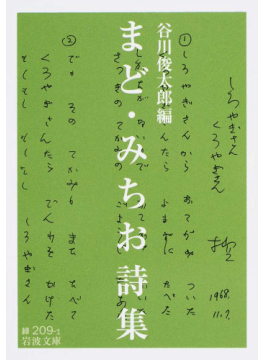 谷川俊太郎編
まど・みちお詩集
しろやぎさん
くろやぎさん
①しろやぎさんから おてがみ ついた
くろやぎさんたら よまずに たべた
さっきのてがみの ごようじ なあに
②でも そのてがみも またたべて
くろやぎさんたら でんわを かけた
もしもし もしもし しろやぎさん
1968.
11.7.
緑 209-1
岩波文庫